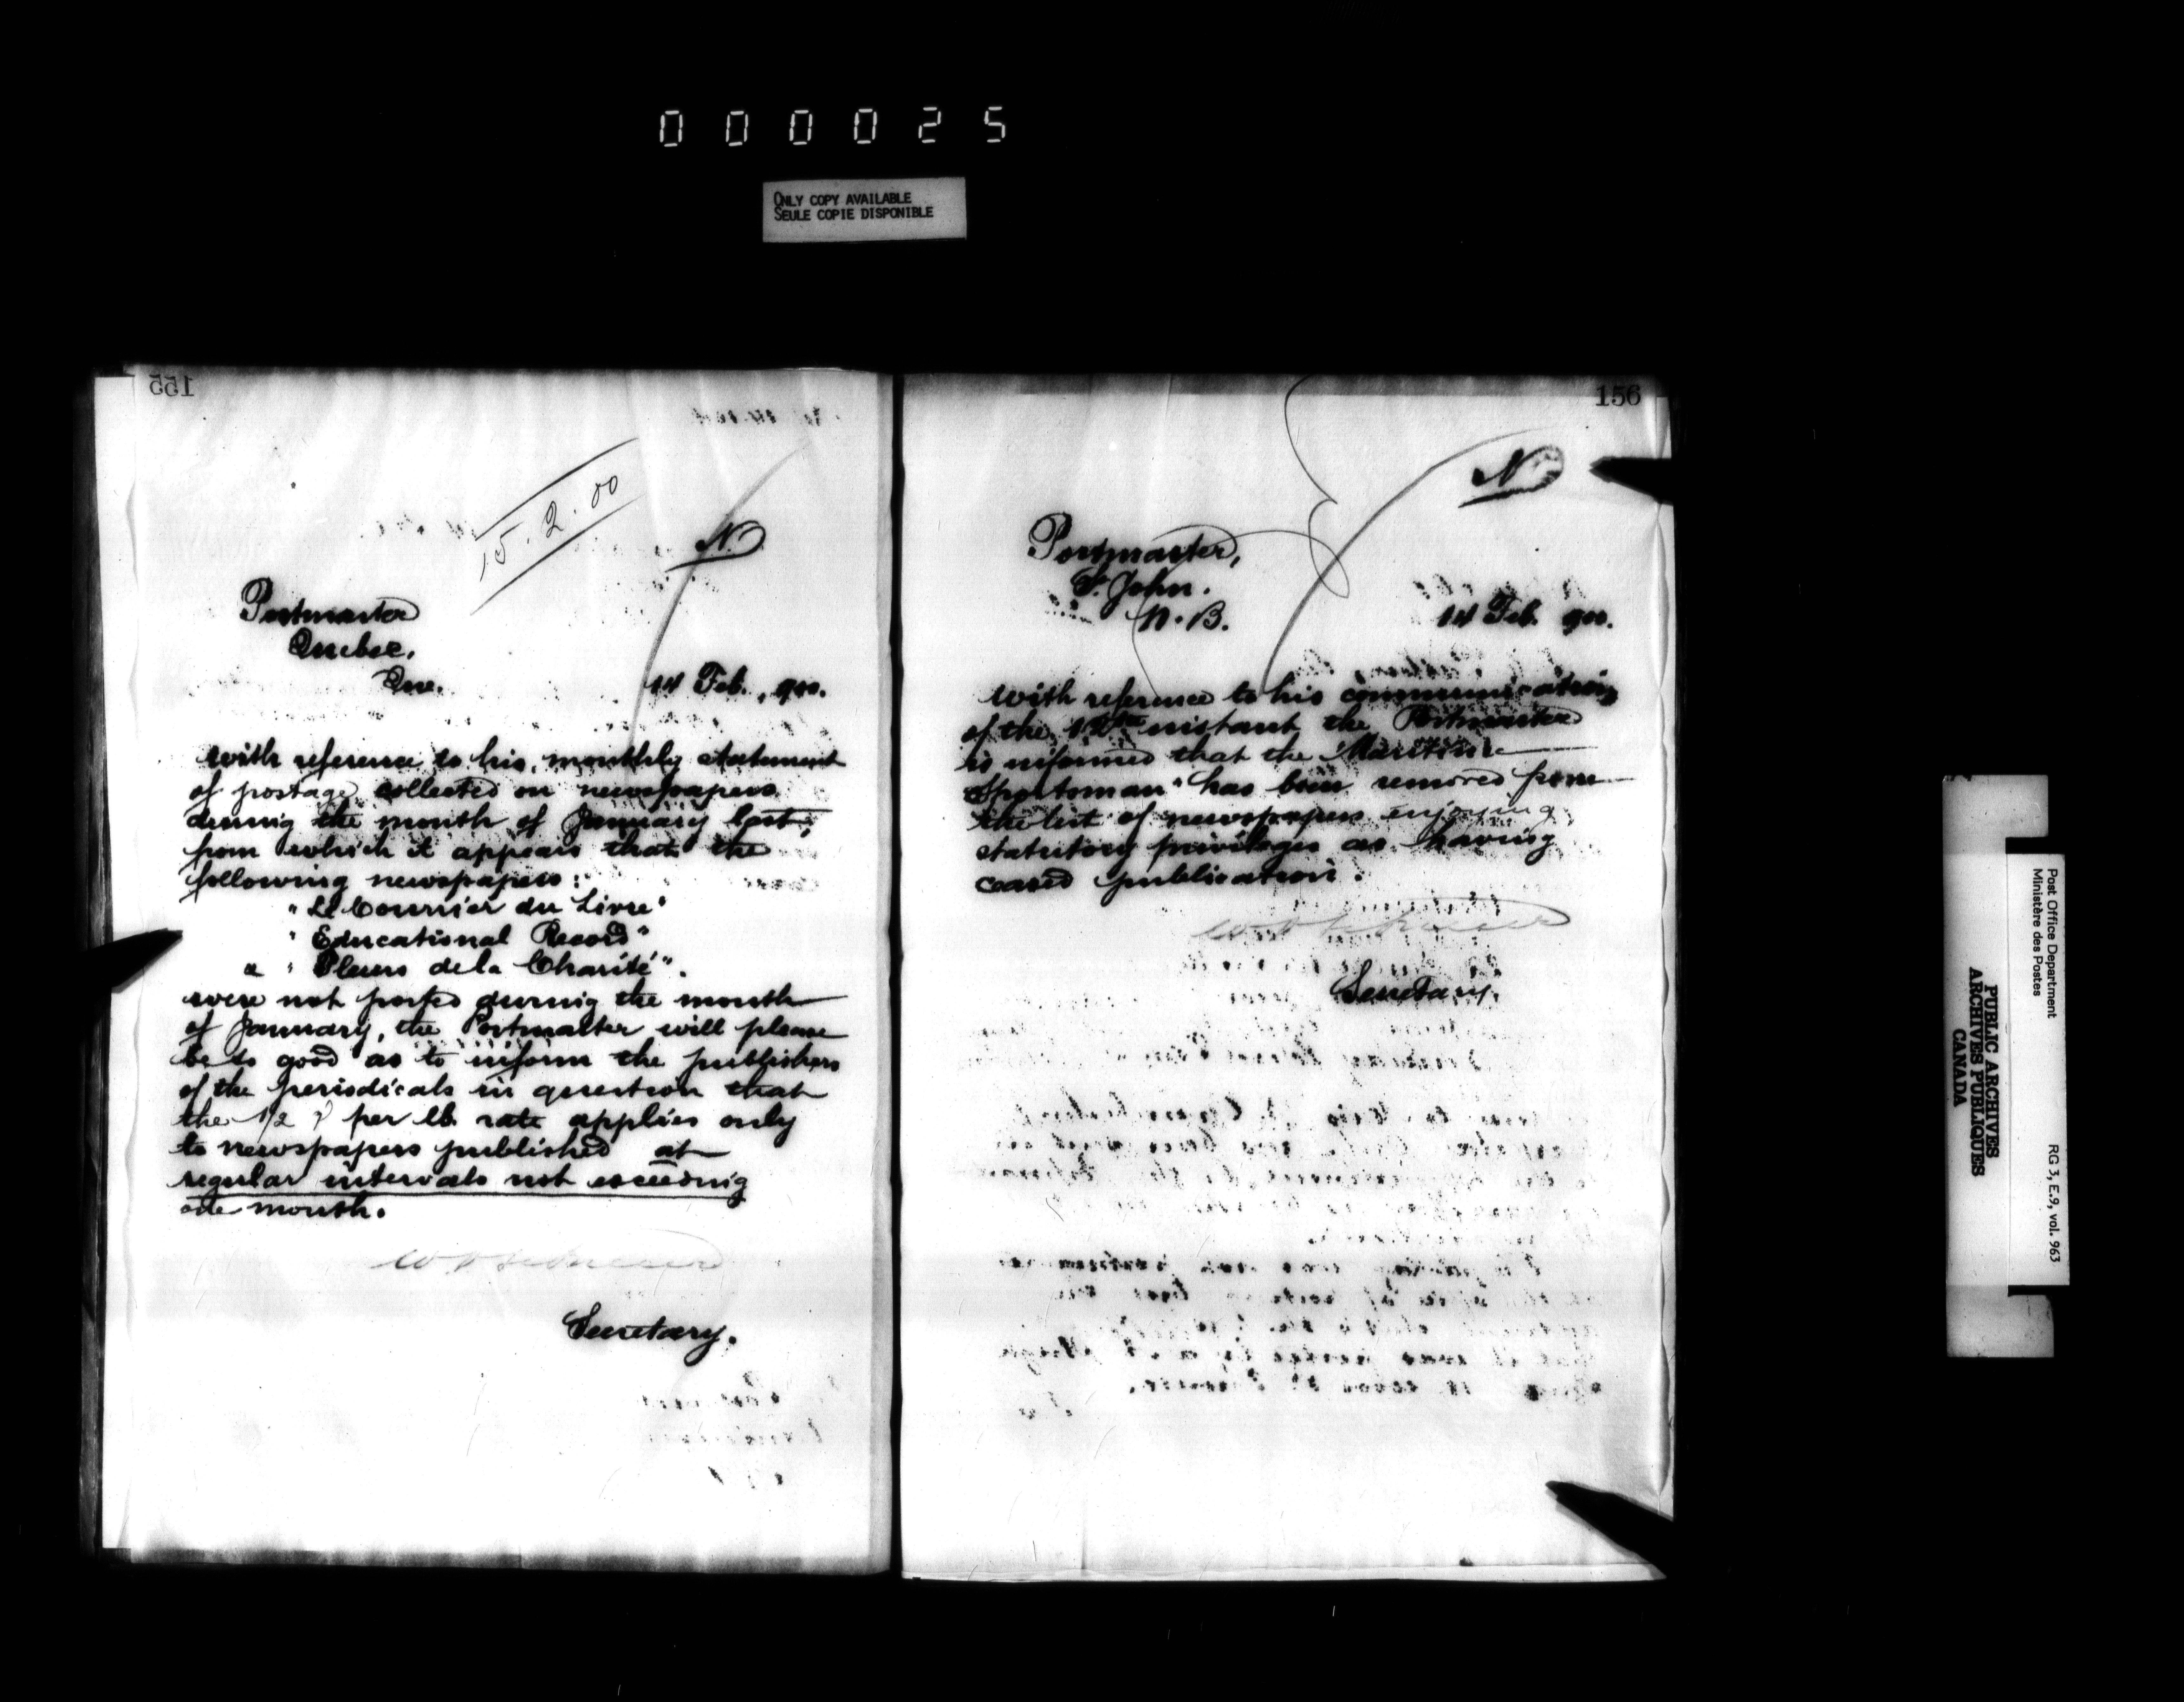 000025
ONLY COPY AVAILABLE
SEULE COPIE DISPONIBLE
155
15.2.00
N.
Postmaster
Quebec.
Que.
14 Feb., 900.
With reference to his monthly statement
of postage collected on newspapers
during the month of January last,
from which it appears that the
following newspapers:
"Le Courrier du Livre"
"Educational Record"
& "Fleurs de la Charité".
were not posted during the month
of January, the Postmaster will please
be so good as to inform the publishers
of the periodicals in question that
the 1/2 ¢ per lb. rate applies only
to newspapers published at
regular intervals not exceeding
one month.
Secretary.
156
N
Postmaster,
St. John.
N.B.
14 Feb. 900.
With reference to his communication
of the instant the Postmaster
is informed that the "Maritime
Sportsman" has been removed from
the list of newspapers enjoying
statutory privileges as having
ceased publication.
Secretary.
Post Office Department
Ministère des Postes
RG 3, E.9, vol. 963
PUBLIC ARCHIVES
ARCHIVES PUBLIQUES
CANADA